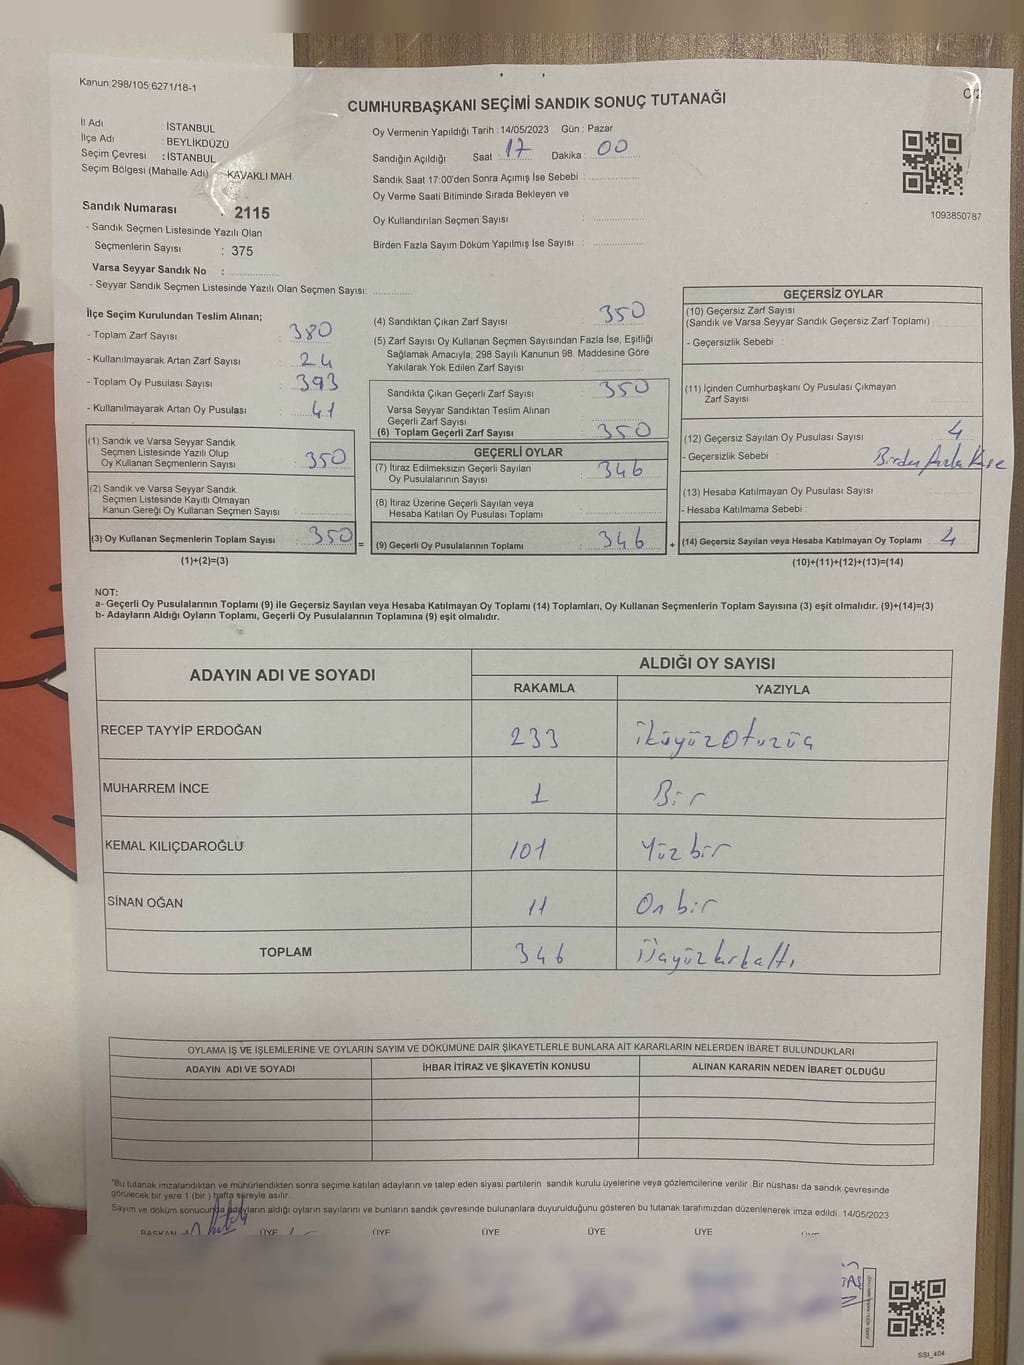 Kanun:298/105,6271/18-1
C/2
CUMHURBAŞKANI SEÇİMİ SANDIK SONUÇ TUTANAĞI
İl Adı İSTANBUL
İlçe Adı : BEYLİKDÜZÜ
Seçim Çevresi : İSTANBUL
Seçim Bölgesi (Mahalle Adı) KAVAKLI MAH.
Sandık Numarası : 2115
- Sandık Seçmen Listesinde Yazılı Olan
Seçmenlerin Sayısı : 375
Varsa Seyyar Sandık No :
- Seyyar Sandık Seçmen Listesinde Yazılı Olan Seçmen Sayısı:
Oy Vermenin Yapıldığı Tarih : 14/05/2023 Gün : Pazar
Sandığın Açıldığı Saat : 17 Dakika : 00
Sandık Saat 17:00'den Sonra Açımış İse Sebebi :
Oy Verme Saati Bitiminde Sırada Bekleyen ve
Oy Kullandırılan Seçmen Sayısı :
Birden Fazla Sayım Döküm Yapılmış İse Sayısı :
1093850787
İlçe Seçim Kurulundan Teslim Alınan;
- Toplam Zarf Sayısı : 380
- Kullanılmayarak Artan Zarf Sayısı : 24
- Toplam Oy Pusulası Sayısı : 393
- Kullanılmayarak Artan Oy Pusulası : 41
(1) Sandık ve Varsa Seyyar Sandık
Seçmen Listesinde Yazılı Olup
Oy Kullanan Seçmenlerin Sayısı : 350
(2) Sandık ve Varsa Seyyar Sandık
Seçmen Listesinde Kayıtlı Olmayan
Kanun Gereği Oy Kullanan Seçmen Sayısı :
(3) Oy Kullanan Seçmenlerin Toplam Sayısı : 350 =
(1)+(2)=(3)
(4) Sandıktan Çıkan Zarf Sayısı : 350
(5) Zarf Sayısı Oy Kullanan Seçmen Sayısından Fazla İse, Eşitliği
Sağlamak Amacıyla; 298 Sayılı Kanunun 98. Maddesine Göre
Yakılarak Yok Edilen Zarf Sayısı :
Sandıkta Çıkan Geçerli Zarf Sayısı : 350
Varsa Seyyar Sandıktan Teslim Alınan
Geçerli Zarf Sayısı :
(6) Toplam Geçerli Zarf Sayısı : 350
GEÇERLİ OYLAR
(7) İtiraz Edilmeksizin Geçerli Sayılan
Oy Pusulalarının Sayısı : 346
(8) İtiraz Üzerine Geçerli Sayılan veya
Hesaba Katılan Oy Pusulası Toplamı :
(9) Geçerli Oy Pusulalarının Toplamı : 346 +
GEÇERSİZ OYLAR
(10) Geçersiz Zarf Sayısı
(Sandık ve Varsa Seyyar Sandık Geçersiz Zarf Toplamı) :
- Geçersizlik Sebebi :
(11) İçinden Cumhurbaşkanı Oy Pusulası Çıkmayan
Zarf Sayısı :
(12) Geçersiz Sayılan Oy Pusulası Sayısı : 4
- Geçersizlik Sebebi : Birden fazla Kaşe
(13) Hesaba Katılmayan Oy Pusulası Sayısı :
- Hesaba Katılmama Sebebi :
(14) Geçersiz Sayılan veya Hesaba Katılmayan Oy Toplamı : 4
(10)+(11)+(12)+(13)=(14)
NOT:
a- Geçerli Oy Pusulalarının Toplamı (9) ile Geçersiz Sayılan veya Hesaba Katılmayan Oy Toplamı (14) Toplamları, Oy Kullanan Seçmenlerin Toplam Sayısına (3) eşit olmalıdır. (9)+(14)=(3)
b- Adayların Aldığı Oyların Toplamı, Geçerli Oy Pusulalarının Toplamına (9) eşit olmalıdır.
ADAYIN ADI VE SOYADI ALDIĞI OY SAYISI
RAKAMLA YAZIYLA
RECEP TAYYİP ERDOĞAN 233 ikiyüzotuzüç
MUHARREM İNCE 1 Bir
KEMAL KILIÇDAROĞLU 101 Yüz bir
SİNAN OĞAN 11 On bir
TOPLAM 346 Üçyüzkırkaltı
OYLAMA İŞ VE İŞLEMLERİNE VE OYLARIN SAYIM VE DÖKÜMÜNE DAİR ŞİKAYETLERLE BUNLARA AİT KARARLARIN NELERDEN İBARET BULUNDUKLARI
ADAYIN ADI VE SOYADI İHBAR İTİRAZ VE ŞİKAYETİN KONUSU ALINAN KARARIN NEDEN İBARET OLDUĞU
"Bu tutanak imzalandıktan ve mühürlendikten sonra seçime katılan adayların ve talep eden siyasi partilerin sandık kurulu üyelerine veya gözlemcilerine verilir. Bir nüshası da sandık çevresinde
görülecek bir yere 1 (bir ) hafta süreyle asılır.
Sayım ve döküm sonucunda adayların aldığı oyların sayılarını ve bunların sandık çevresinde bulunanlara duyurulduğunu gösteren bu tutanak tarafımızdan düzenlenerek imza edildi. 14/05/2023
BAŞKAN ÜYE ÜYE ÜYE ÜYE ÜYE
SSI_404